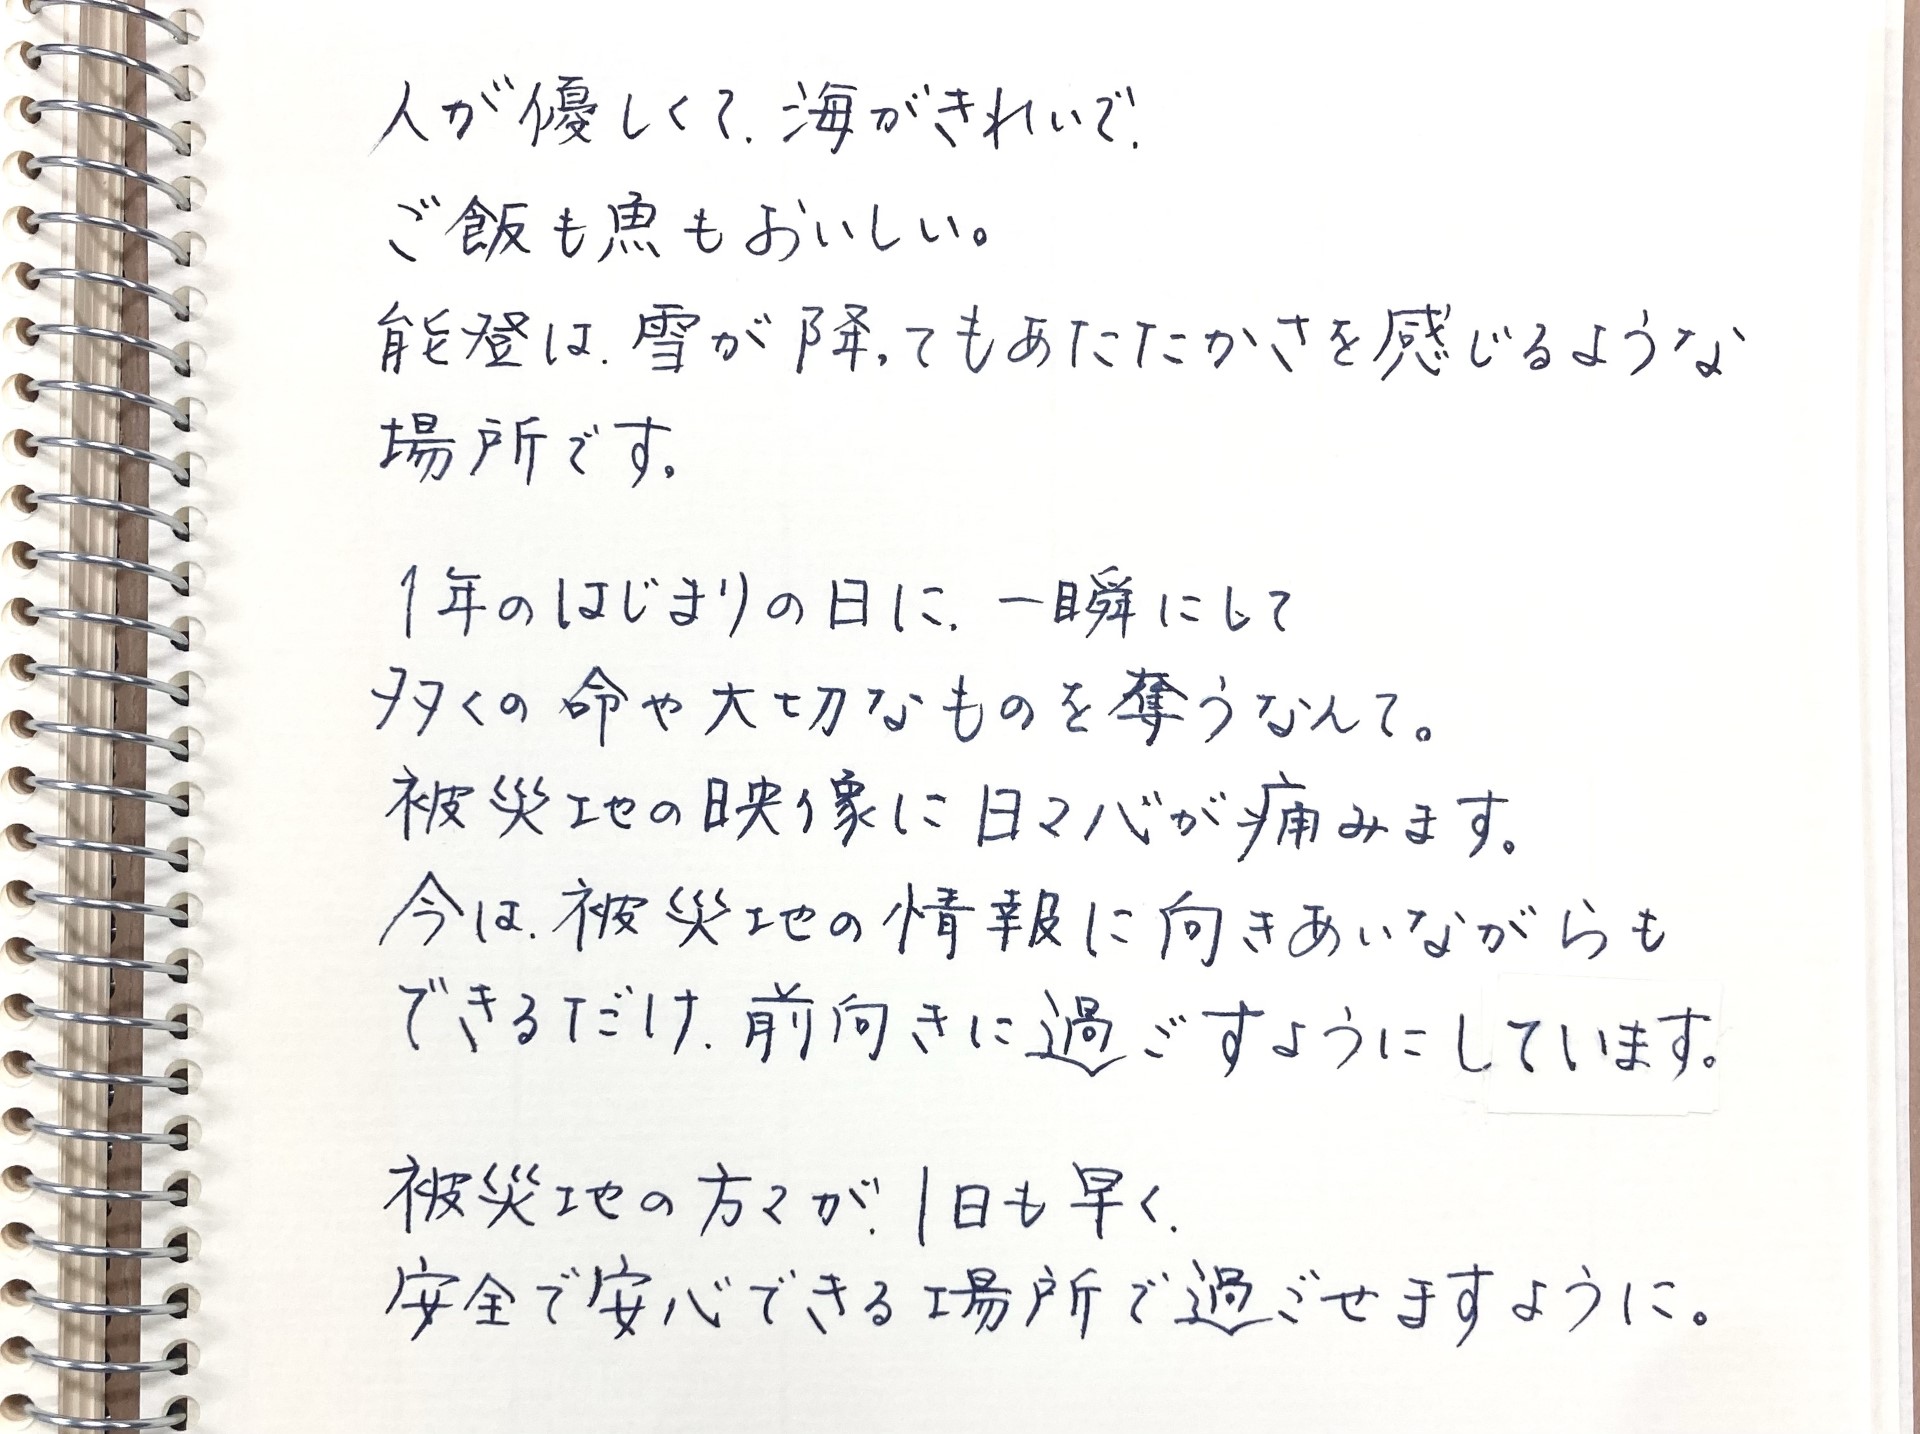 人が優しくて、海がきれいで、
ご飯も魚もおいしい。
能登は、雪が降ってもあたたかさを感じるような
場所です。
1年のはじまりの日に、一瞬にして
多くの命や大切なものを奪うなんて。
被災地の映像に日々心が痛みます。
今は、被災地の情報に向きあいながらも
できるだけ、前向きに過ごすようにしています。
被災地の方々が、1日も早く、
安全で安心できる場所で過ごせますように。